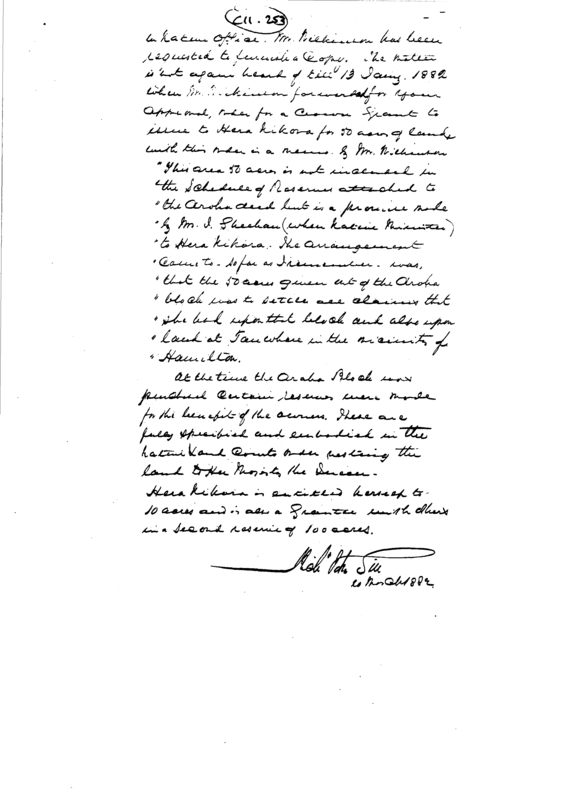 C11 . 253
to Native Office. Mr. Wilkinson has been
requested to furnish a Copy. The matter
is not again heard of till 13 Jany. 1882
when Mr. Wilkinson forwarded for your
approval, order for a Crown Grant to
issue to Hera Kikora for 50 acres of land
with this order is a memo. by Mr. Wilkinson
"This area 50 acres is not included in
"the Schedule of Reserves attached to
"the Aroha deed but is a promise made
"by Mr. J. Sheehan (when Native Minister)
"to Hera Kikora. The arrangement
"Came to - so far as I remember - was,
"that the 50 acres given out of the Aroha
"block was to settle all claims that
"she had upon that block and also upon
"land at Tauwhare in the vicinity of
"Hamilton.
At the time the Aroha Block was
purchased Certain reserves were made
for the benefit of the owners. These are
fully specified and embodied in the
Native Land Courts order vesting the
land to Her Majesty the Queen.
Hera Kikora is entitled herself to
10 acres and is also a Grantee with others
in a second reserve of 100 acres.
1882